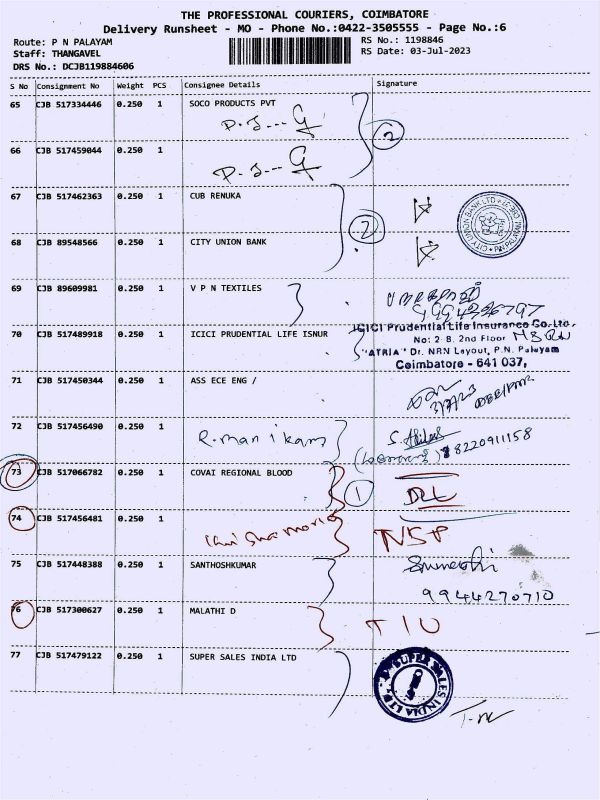 THE PROFESSIONAL COURIERS, COIMBATORE
Delivery Runsheet - MO - Phone No.:0422-3505555 - Page No.:6
Route: P N PALAYAM RS No.: 1198846
Staff: THANGAVEL RS Date: 03-Jul-2023
DRS No.: DCJB119884606
S No Consignment No Weight PCS Consignee Details Signature
65 CJB 517334446 0.250 1 SOCO PRODUCTS PVT
2
66 CJB 517459044 0.250 1
67 CJB 517462363 0.250 1 CUB RENUKA
CITY UNION BANK LTD
68 CJB 89548566 0.250 1 CITY UNION BANK
2
69 CJB 89609981 0.250 1 V P N TEXTILES
9994336797
70 CJB 517489918 0.250 1 ICICI PRUDENTIAL LIFE ISNUR
ICICI Prudential Life Insurance Co. Ltd.,
No: 2-B, 2nd Floor
"ATRIA" Dr. NRN Layout, P.N. Palayam
Coimbatore - 641 037,
71 CJB 517450344 0.250 1 ASS ECE ENG /
72 CJB 517456490 0.250 1
R. manikam
8220911158
73 CJB 517066782 0.250 1 COVAI REGIONAL BLOOD
1 DLL
74 CJB 517456481 0.250 1
NSP
75 CJB 517448388 0.250 1 SANTHOSHKUMAR
9944270710
76 CJB 517300627 0.250 1 MALATHI D
TIU
77 CJB 517479122 0.250 1 SUPER SALES INDIA LTD
SUPER SALES INDIA LTD